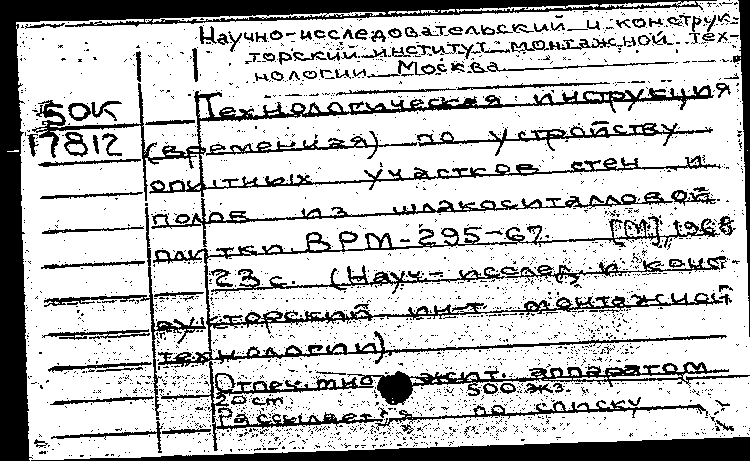 Научно-исследовательский и конструк-
торский институт монтажной тех-
нологии. Москва
50К
17812
Технологическая инструкция
(временная) по устройству
опытных участков стен и
полов из шлакоситалловой
плитки. ВРМ-295-67. [М], 1968
23 с. (Науч.-исслед. и конст-
рукторский ин-т монтажной
технологии).
Отпеч. множит. аппаратом
500 экз.
Рассылается по списку